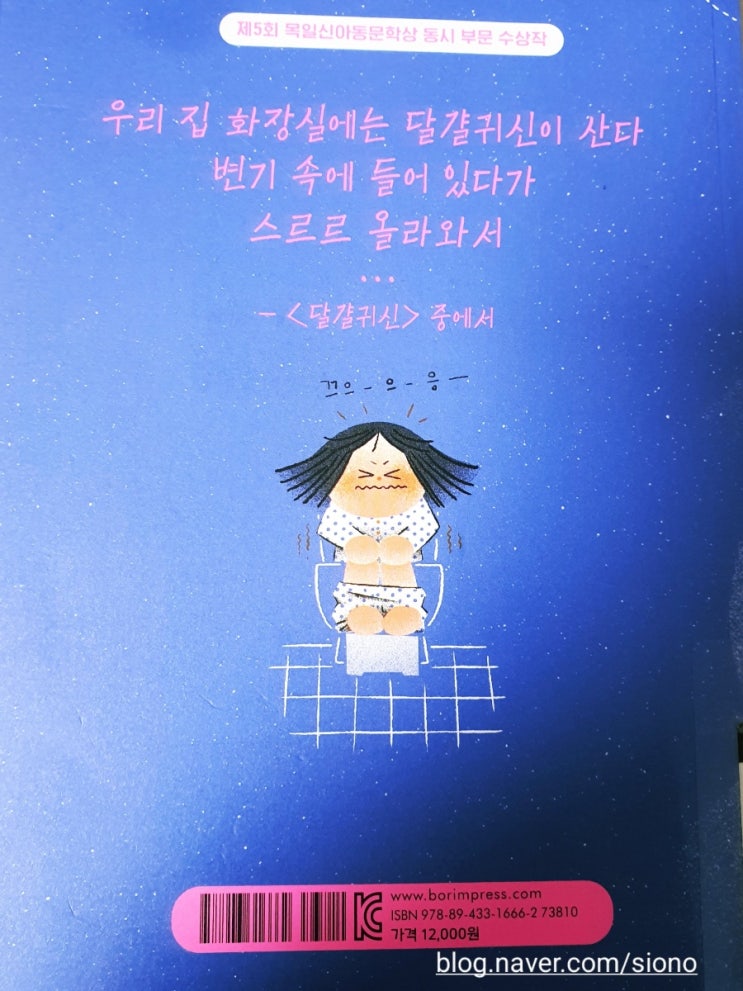 제5회 목일신아동문학상 동시 부문 수상작
우리 집 화장실에는 달걀귀신이 산다
변기 속에 들어 있다가
스르르 올라와서
...
- <달걀귀신> 중에서
끄으-으-응-
www.borimpress.com
ISBN 978-89-433-1666-2 73810
가격 12,000원
blog.naver.com/siono